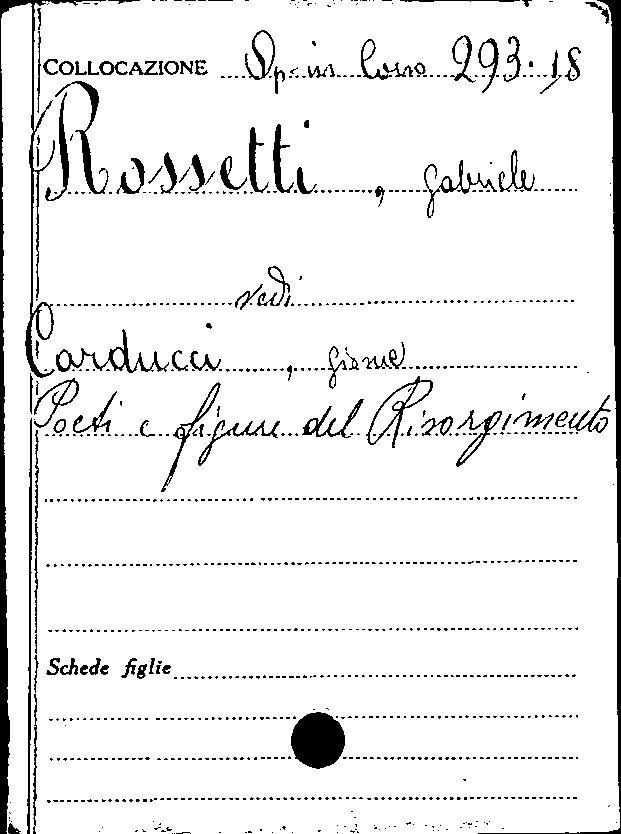 COLLOCAZIONE Sp-in Corso 293.18
Rossetti, Gabriele
vedi
Carducci, Giosue
Poeti e figure del Risorgimento
Schede figlie